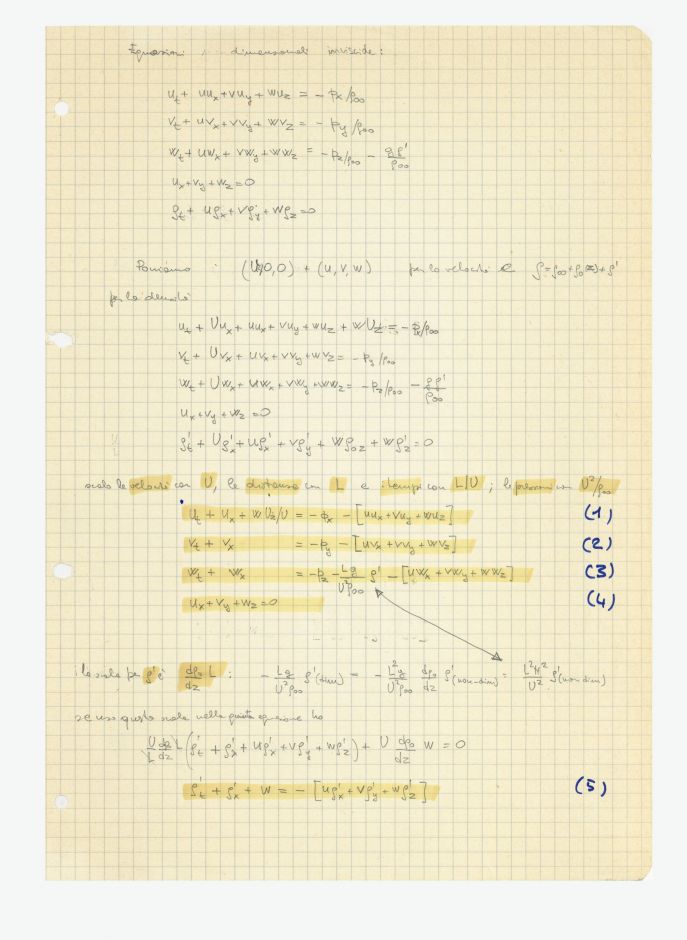 Equazioni dimensionali inviscide:
u_t + uu_x + vu_y + wu_z = - p_x/ρ_00
v_t + uv_x + vv_y + wv_z = - p_y/ρ_00
w_t + uw_x + vw_y + ww_z = - p_z/ρ_00 - gρ'/ρ_00
u_x + v_y + w_z = 0
ρ_t + uρ_x + vρ_y + wρ_z = 0
Poniamo : (U,0,0) + (u,v,w) per la velocità e ρ = ρ_00 + ρ_0(z) + ρ'
per la densità
u_t + Uu_x + uu_x + vu_y + wu_z + wU_z = - p_x/ρ_00
v_t + Uv_x + uv_x + vv_y + wv_z = - p_y/ρ_00
w_t + Uw_x + uw_x + vw_y + ww_z = - p_z/ρ_00 - gρ'/ρ_00
u_x + v_y + w_z = 0
ρ'_t + Uρ'_x + uρ'_x + vρ'_y + wρ_0z + wρ'_z = 0
scalo le velocità con U, le distanze con L e i tempi con L/U ; le pressioni con U²/ρ_00
u_t + u_x + wU_z/U = - p_x - [uu_x + vu_y + wu_z] (1)
v_t + v_x = - p_y - [uv_x + vv_y + wv_z] (2)
w_t + w_x = - p_z - Lg/U²ρ_00 ρ' - [uw_x + vw_y + ww_z] (3)
u_x + v_y + w_z = 0 (4)
la scala per ρ' è dρ_0/dz L : - Lg/U²ρ_00 ρ'(dim) = - L²g/U²ρ_00 dρ_0/dz ρ'(non-dim) = L²N²/U² ρ'(non dim)
se uso questa scala nella quinta equazione ho
U/L dρ_0/dz L (ρ'_t + ρ'_x + uρ'_x + vρ'_y + wρ'_z) + U dρ_0/dz w = 0
ρ'_t + ρ'_x + w = - [uρ'_x + vρ'_y + wρ'_z] (5)